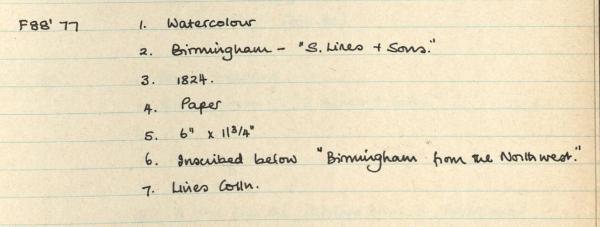 F88' 77 1. Watercolour
2. Birmingham - "S. Lines + Sons."
3. 1824.
4. Paper
5. 6" x 11 3/4"
6. Inscribed below "Birmingham from the Northwest."
7. Lines Colln.